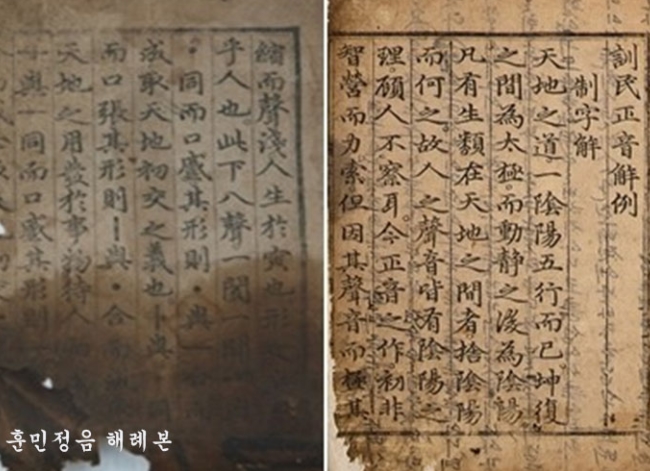 訓民正音解例
制字解
天地之道一陰陽五行而已坤復
之間為太極而動靜之後為陰陽
凡有生類在天地之間者捨陰陽
而何之故人之聲音皆有陰陽之
理顧人不察耳今正音之作初非
智營而力索但因其聲音而極其
縮而聲淺人生於寅也形之
乎人也此下八聲一闔一
·同而口蹙其形則·與ㅡ合而
成取天地初交之義也ㅏ與·
而口張其形則ㅣ與·合而成
天地之用發於事物待人而
與ㅡ同而口蹙其形則ㅡ
훈민정음 해례본